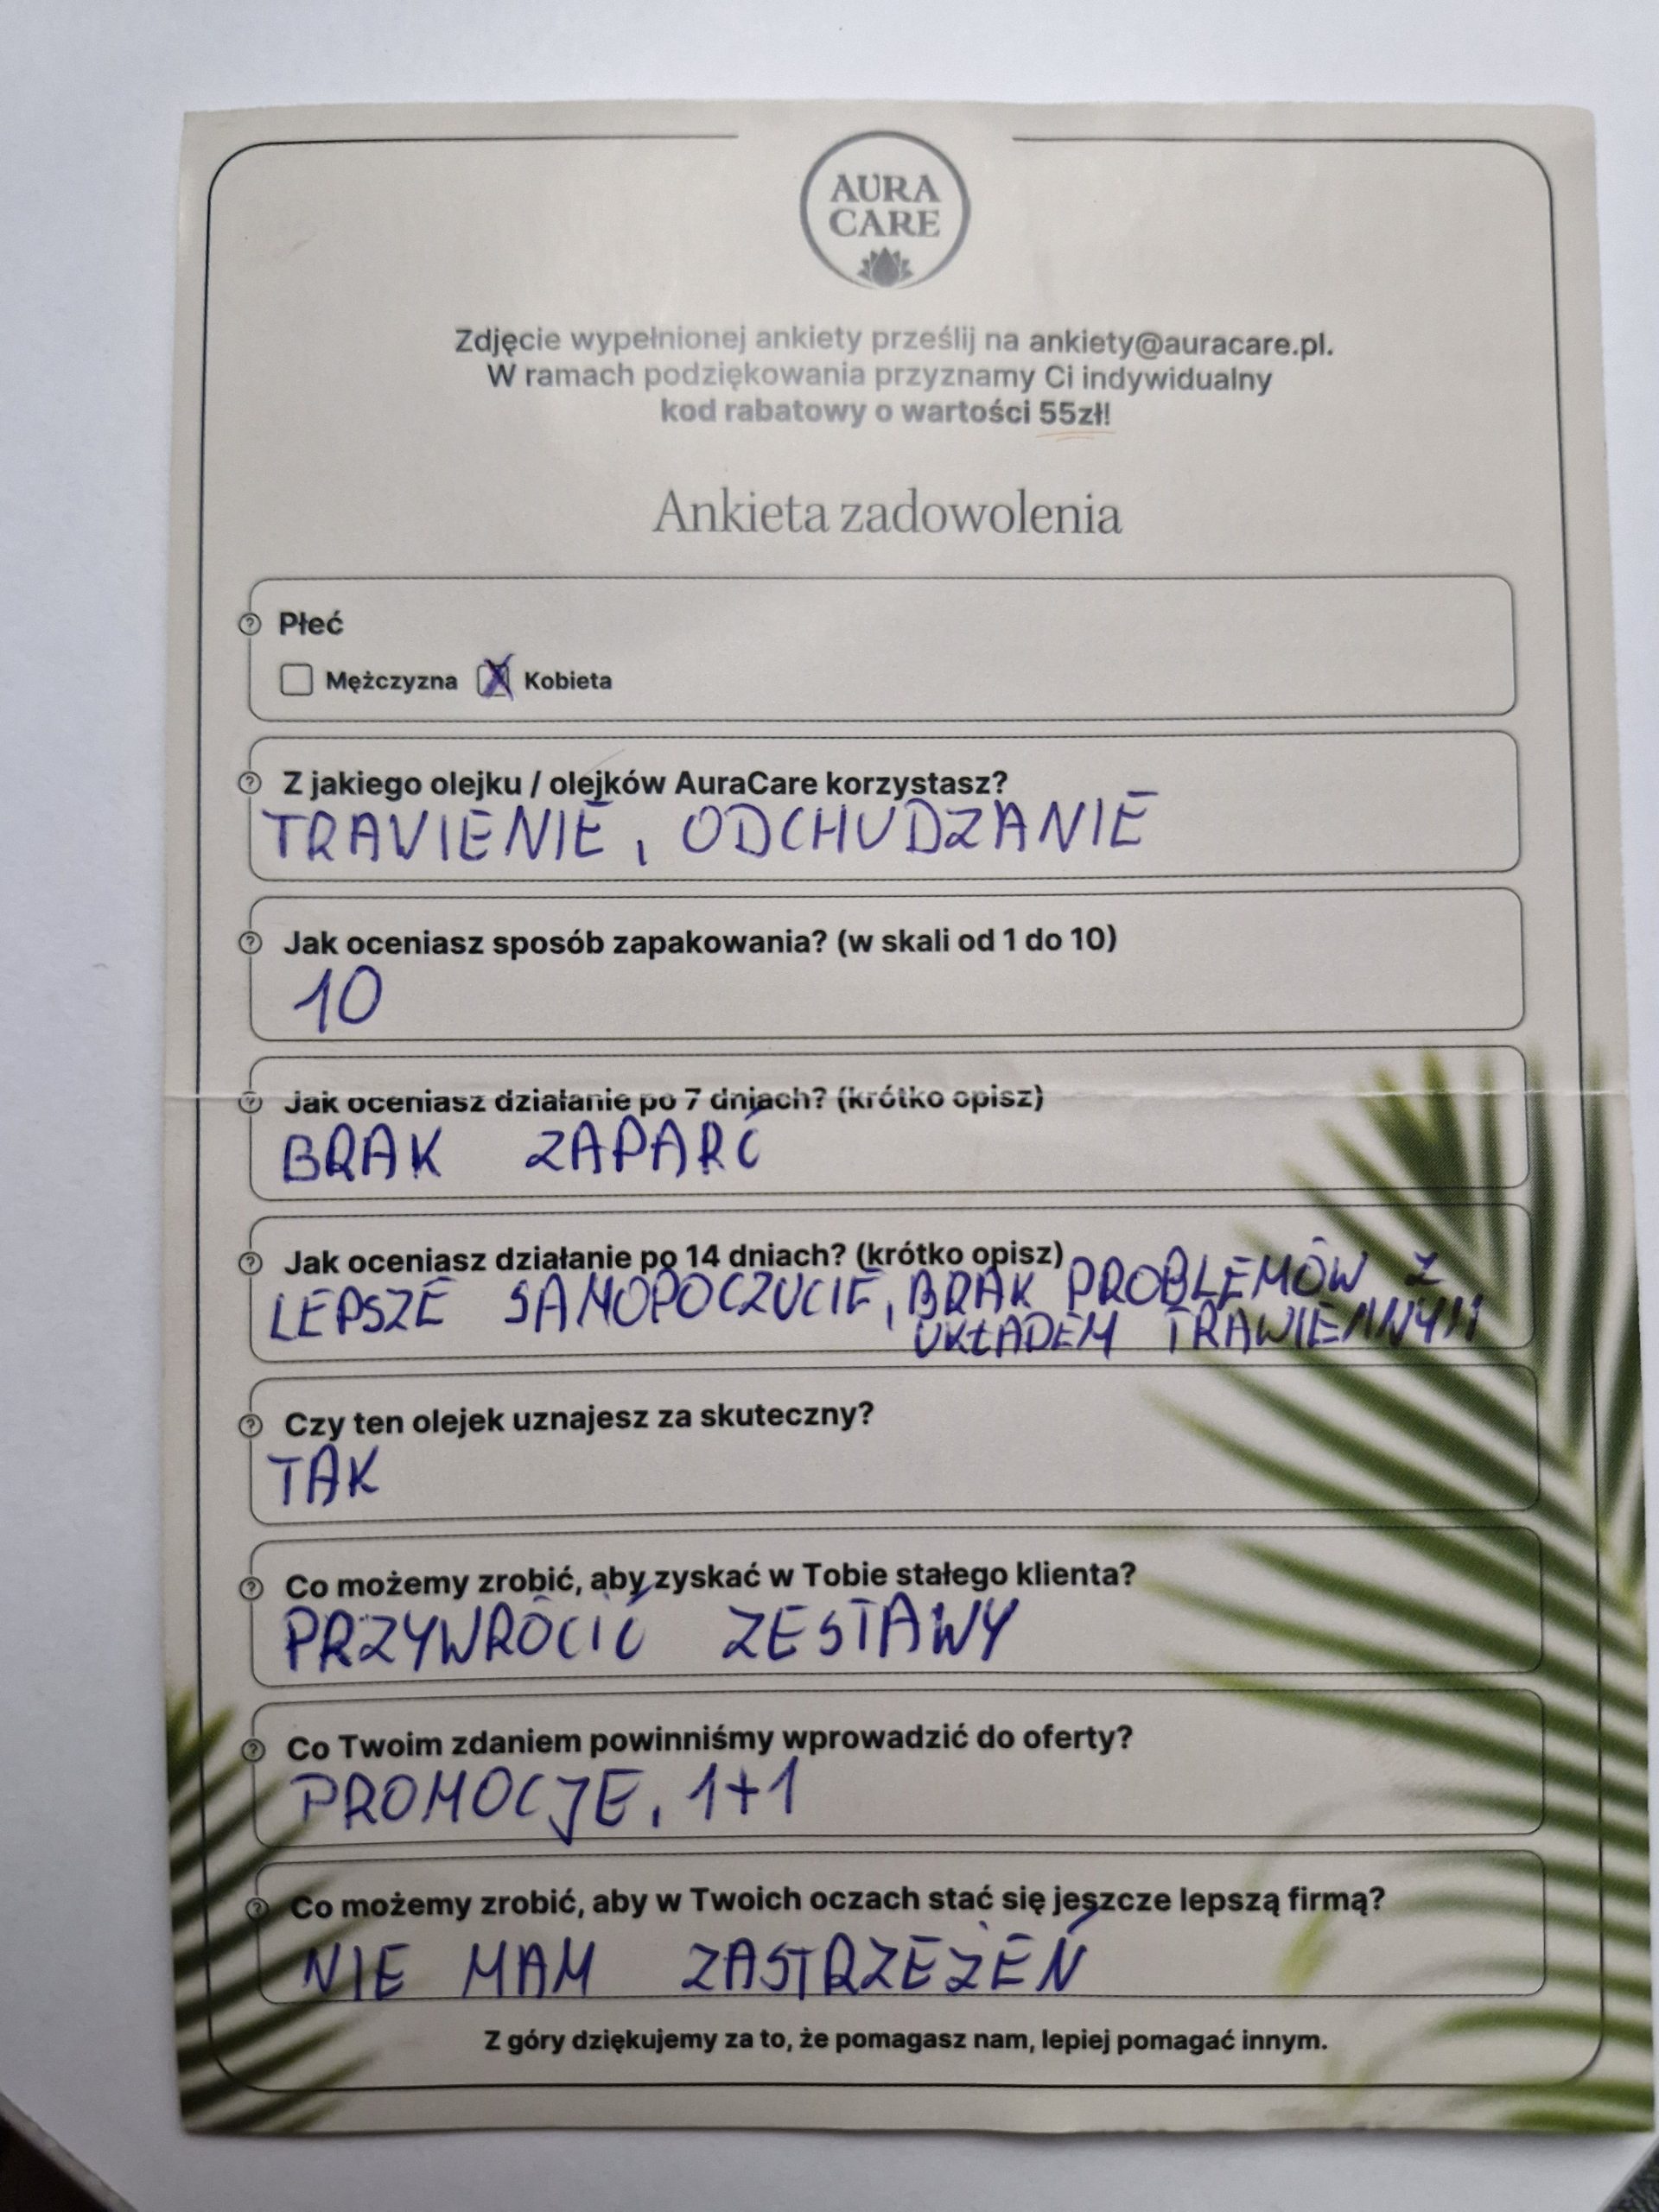 AURA
CARE
Zdjęcie wypełnionej ankiety prześlij na ankiety@auracare.pl.
W ramach podziękowania przyznamy Ci indywidualny
kod rabatowy o wartości 55zł!
Ankieta zadowolenia
Płeć
Mężczyzna X Kobieta
Z jakiego olejku / olejków AuraCare korzystasz?
TRAVIENIE, ODCHUDZANIE
Jak oceniasz sposób zapakowania? (w skali od 1 do 10)
10
Jak oceniasz działanie po 7 dniach? (krótko opisz)
BRAK ZAPARĆ
Jak oceniasz działanie po 14 dniach? (krótko opisz)
LEPSZE SAMOPOCZUCIE, BRAK PROBLEMÓW Z
UKŁADEM TRAWIENNYM
Czy ten olejek uznajesz za skuteczny?
TAK
Co możemy zrobić, aby zyskać w Tobie stałego klienta?
PRZYWRÓCIĆ ZESTAWY
Co Twoim zdaniem powinniśmy wprowadzić do oferty?
PROMOCJE, 1+1
Co możemy zrobić, aby w Twoich oczach stać się jeszcze lepszą firmą?
NIE MAM ZASTRZEŻEŃ
Z góry dziękujemy za to, że pomagasz nam, lepiej pomagać innym.